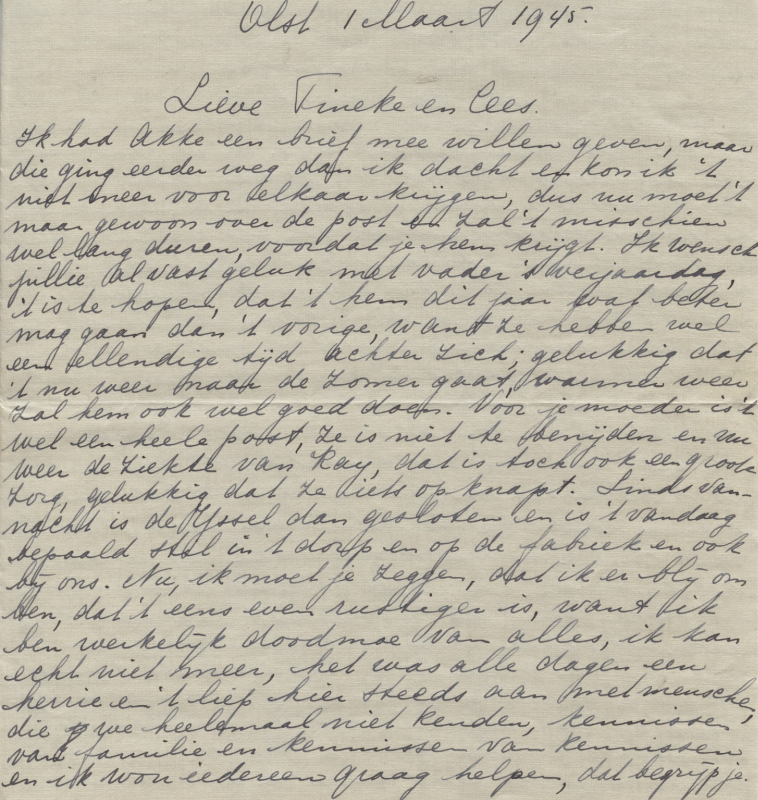 Olst 1 Maart 1945.
Lieve Tineke en Cees.
Ik had Akke een brief mee willen geven, maar
die ging eerder weg dan ik dacht en kon ik 't
niet meer voor elkaar krijgen, dus nu moet 't
maar gewoon over de post en zal 't misschien
wel lang duren, voordat je hem krijgt. Ik wensch
jullie alvast geluk met vader's verjaardag,
't is te hopen, dat 't hem dit jaar wat beter
mag gaan dan 't vorige, want ze hebben wel
een ellendige tijd achter zich; gelukkig dat
't nu weer naar de zomer gaat, warmer weer
zal hem ook wel goed doen. Voor je moeder is 't
wel een heele post, ze is niet te benijden en nu
weer de ziekte van Ray, dat is toch ook een groote
zorg, gelukkig dat ze iets opknapt. Sinds van-
nacht is de IJssel dan gesloten en is 't vandaag
bepaald stil in 't dorp en op de fabriek en ook
bij ons. Nu, ik moet je zeggen, dat ik er blij om
ben, dat 't eens even rustiger is, want ik
ben werkelijk doodmoe van alles, ik kan
echt niet meer, het was alle dagen een
herrie en 't liep hier steeds aan met menschen,
die we heelemaal niet kenden, kennissen
van familie en kennissen van kennissen
en ik wou iedereen graag helpen, dat begrijp je.